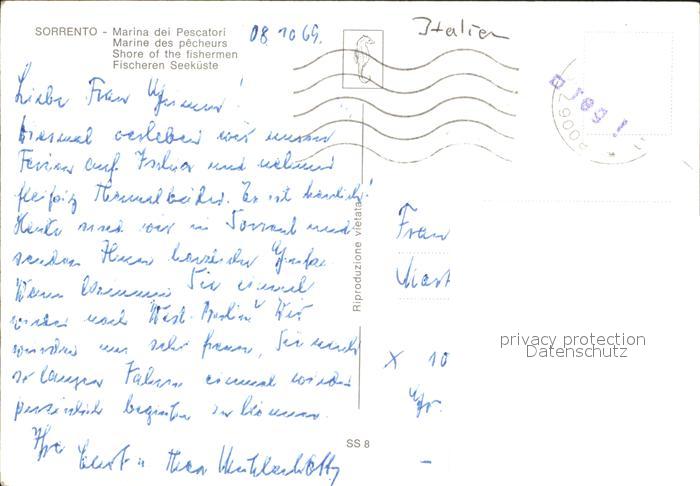 SORRENTO - Marina dei Pescatori
Marine des pêcheurs
Shore of the fishermen
Fischeren Seeküste
08 10 69.
Italien
Liebe Frau
diesmal verleben wir unsere
Ferien auf Ischia und nehmen
fleißig Thermalbäder. Es ist herrlich!
Heute sind wir in Sorrent und
senden Ihnen herzliche Grüße.
Wann kommen Sie einmal
wieder nach West-Berlin? Wir
würden uns sehr freuen, Sie nach
so langen Jahren einmal wieder
persönlich begrüßen zu können.
Ihre
Ernst u. Thea
Riproduzione vietata
Frau
X 10
SS 8
privacy protection
Datenschutz